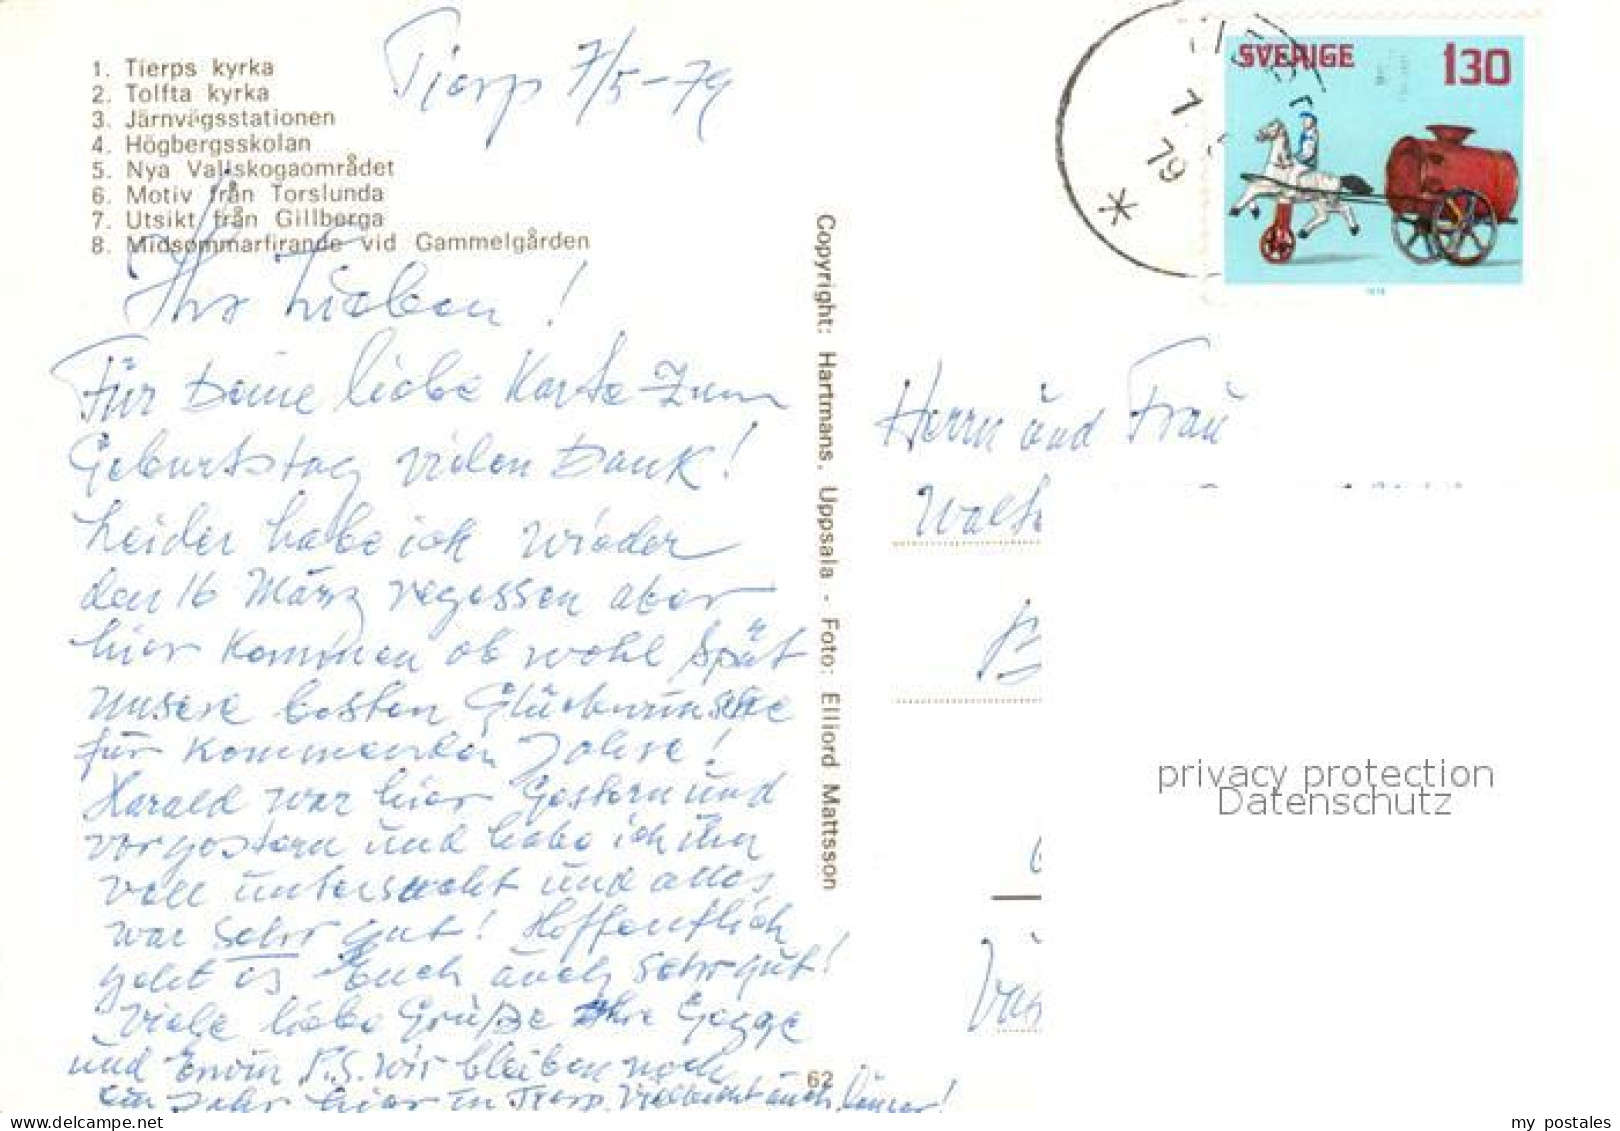 1. Tierps kyrka
2. Tolfta kyrka
3. Järnvägsstationen
4. Högbergsskolan
5. Nya Vallskogaområdet
6. Motiv från Torslunda
7. Utsikt från Gillberga
8. Midsommarfirande vid Gammelgården
Tierp 7/5-79
Ihr Lieben!
Für Deine liebe Karte zum
Geburtstag vielen Dank!
Leider habe ich wieder
den 16 März vegessen aber
hier kommen ob wohl spät
unsere besten Glückwünsche
für kommenden Jahre!
Harald war hier gestern und
vorgestern und habe ich ihn
voll untersucht und alles
war sehr gut! Hoffentlich
geht es Euch auch sehr gut!
Viele liebe Grüße Ihre Gegge
und Erwin P.S. Wir bleiben noch
ein Jahr hier in Tierp. Vielleicht auch länger!
Copyright: Hartmans, Uppsala - Foto: Elliord Mattsson
62
7
79
SVERIGE 130
1978
Herrn und Frau
Walt
privacy protection
Datenschutz
my postales